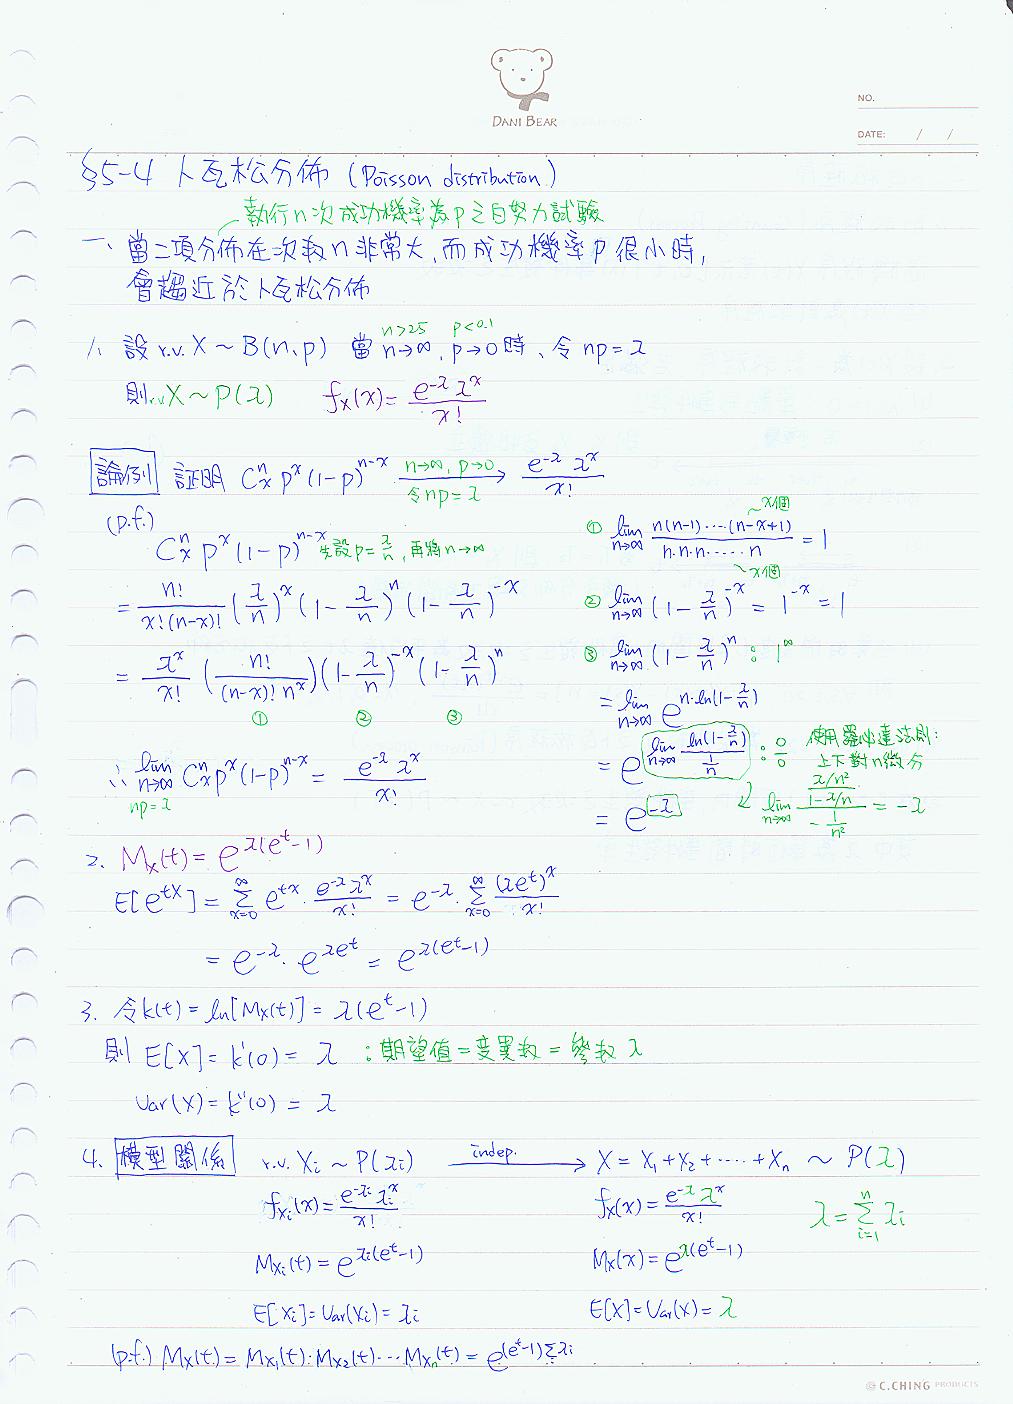 DANI BEAR
NO.
DATE: / /
§5-4 卜瓦松分佈 (Poisson distribution)
執行n次成功機率為p之白努力試驗
一、當二項分佈在次數n非常大,而成功機率p很小時,
會趨近於卜瓦松分佈
n>25 p<0.1
1、設 r.v. X ~ B(n,p) 當 n→∞, p→0 時、令 np=λ
則 r.v X ~ P(λ) f_X(x) = e^{-λ} λ^x / x!
論例 証明 C^n_x p^x (1-p)^{n-x} n→∞, p→0 令np=λ → e^{-λ} λ^x / x!
(p.f.)
C^n_x p^x (1-p)^{n-x} 先設 p=λ/n, 再將 n→∞
= n! / x!(n-x)! (λ/n)^x (1-λ/n)^n (1-λ/n)^{-x}
= λ^x / x! (n! / (n-x)! n^x) (1-λ/n)^{-x} (1-λ/n)^n
① ② ③
∴ lim n→∞ np=λ C^n_x p^x (1-p)^{n-x} = e^{-λ} λ^x / x!
~x個
① lim n→∞ n(n-1)····(n-x+1) / n·n·n·····n = 1
~x個
② lim n→∞ (1-λ/n)^{-x} = 1^{-x} = 1
③ lim n→∞ (1-λ/n)^n : 1^∞
= lim n→∞ e^{n·ln(1-λ/n)}
= e^{lim n→∞ ln(1-λ/n) / (1/n)} : 0/0 使用羅必達法則:
上下對n微分
= e^{-λ} lim n→∞ (λ/n² / (1-λ/n)) / (-1/n²) = -λ
2. M_X(t) = e^{λ(e^t-1)}
E[e^{tX}] = Σ_{x=0}^∞ e^{tx} · e^{-λ} λ^x / x! = e^{-λ} · Σ_{x=0}^∞ (λe^t)^x / x!
= e^{-λ} · e^{λe^t} = e^{λ(e^t-1)}
3. 令 k(t) = ln[M_X(t)] = λ(e^t-1)
則 E[X] = k'(0) = λ : 期望值 = 變異數 = 參數 λ
Var(X) = k''(0) = λ
4. 模型關係 r.v. X_i ~ P(λ_i) indep. → X = X_1+X_2+····+X_n ~ P(λ)
f_{X_i}(x) = e^{-λ_i} λ_i^x / x! f_X(x) = e^{-λ} λ^x / x! λ = Σ_{i=1}^n λ_i
M_{X_i}(t) = e^{λ_i(e^t-1)} M_X(x) = e^{λ(e^t-1)}
E[X_i] = Var(X_i) = λ_i E[X] = Var(X) = λ
(p.f.) M_X(t) = M_{X_1}(t)·M_{X_2}(t)···M_{X_n}(t) = e^{(e^t-1)Σλ_i}
C.CHING PRODUCTS